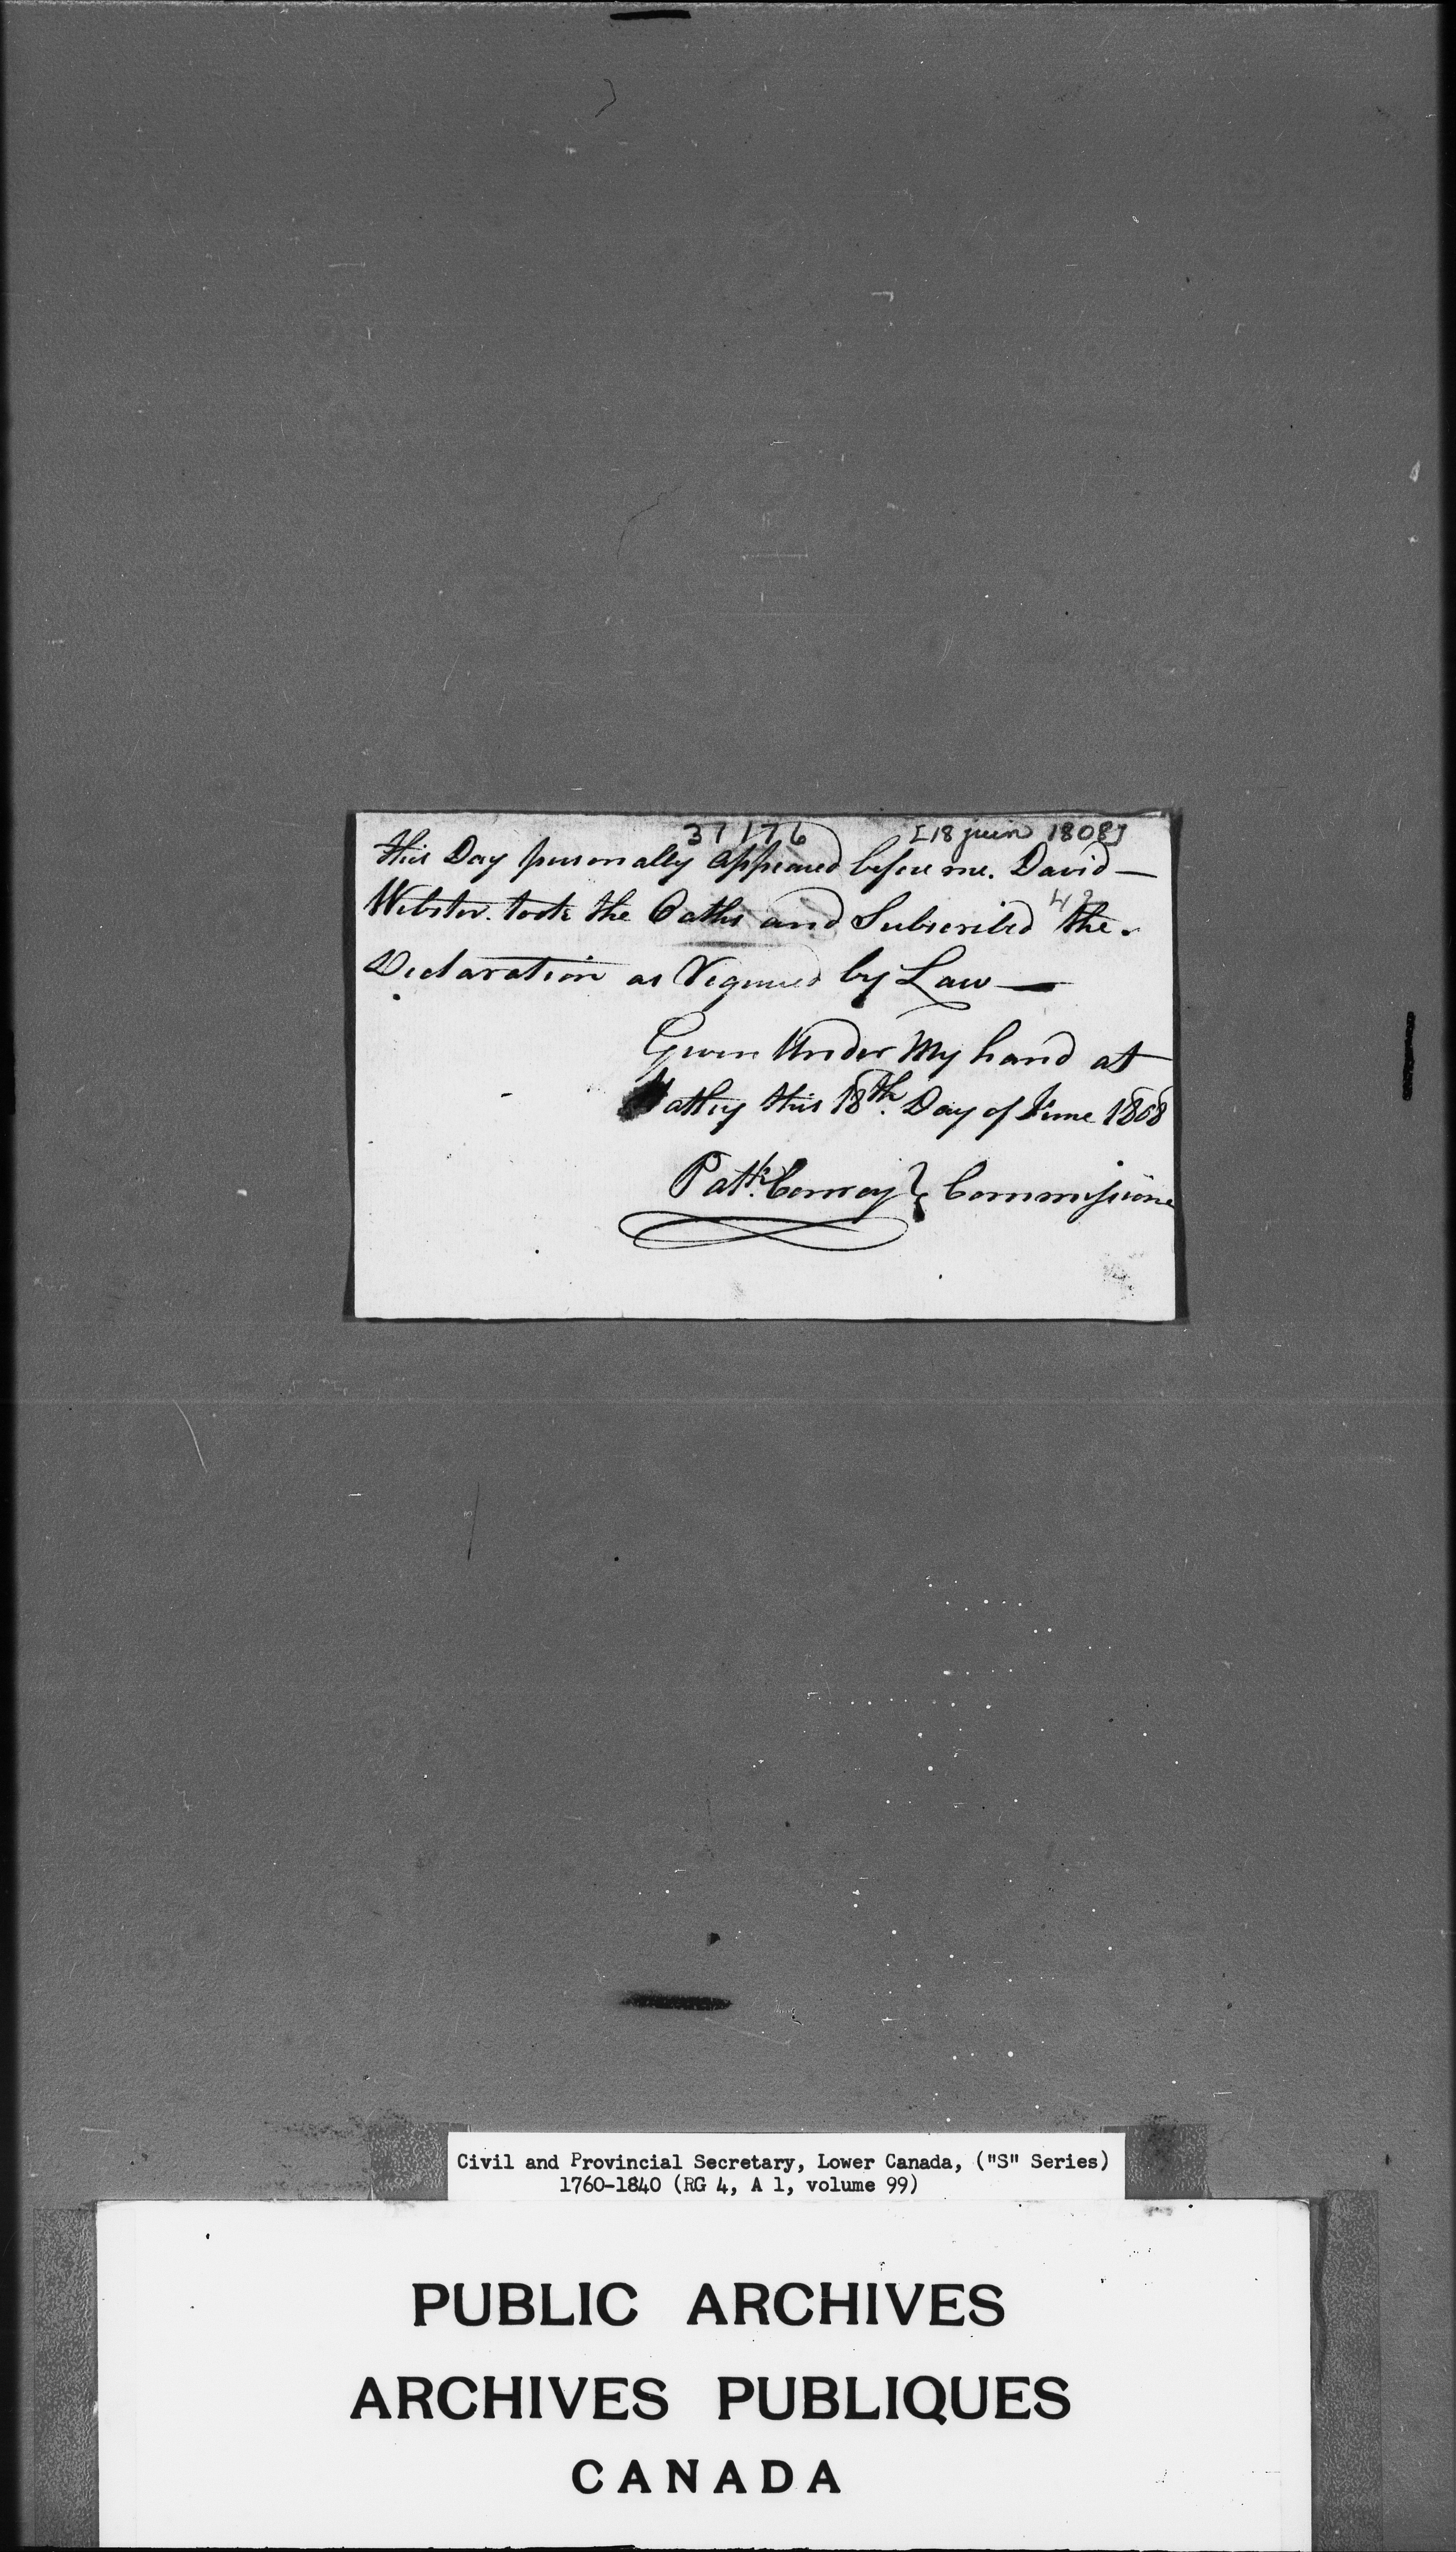 37176 [18 juin 1808]
this Day personally appeared before me. David —
42
Webster. took the Oaths and Subscribed the.
Declaration as Required by Law —
Given Under My hand at
Hatley this 18th. Day of June 1808
Patk. Conroy } Commissione
Civil and Provincial Secretary, Lower Canada, ("S" Series)
1760-1840 (RG 4, A 1, volume 99)
PUBLIC ARCHIVES
ARCHIVES PUBLIQUES
CANADA